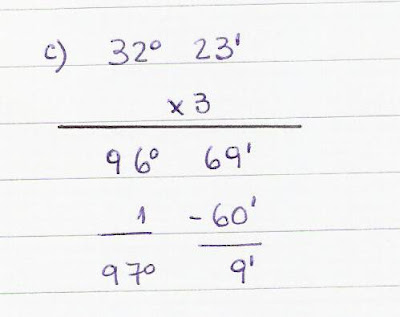 c) 32° 23'
x 3
96° 69'
1 -60'
97° 9'